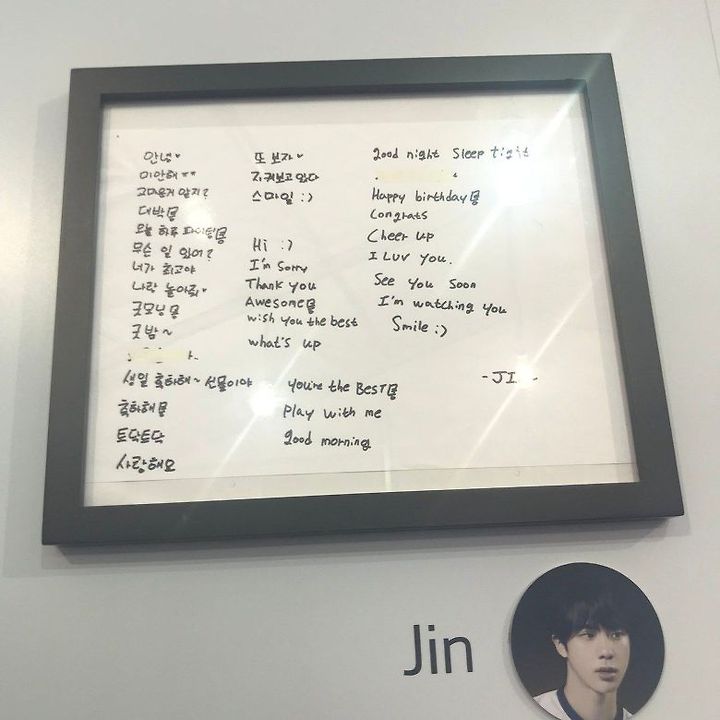 안녕♥
미안해ㅠㅠ
고마운거 알지?
대박
오늘 하루 파이팅
무슨 일 있어?
너가 최고야
나랑 놀아줘♥
굿모닝
굿밤~
생일 축하해~ 선물이야
축하해
토닥토닥
사랑해요
또 보자♥
지켜보고 있다
스마일 :)
Hi :)
I'm sorry
Thank you
Awesome
wish you the best
what's up
you're the BesT
Play with me
good morning
good night Sleep tight
Happy birthday
Congrats
Cheer up
I Luv you.
See you soon
I'm watching you
Smile :)
-JIN-
Jin